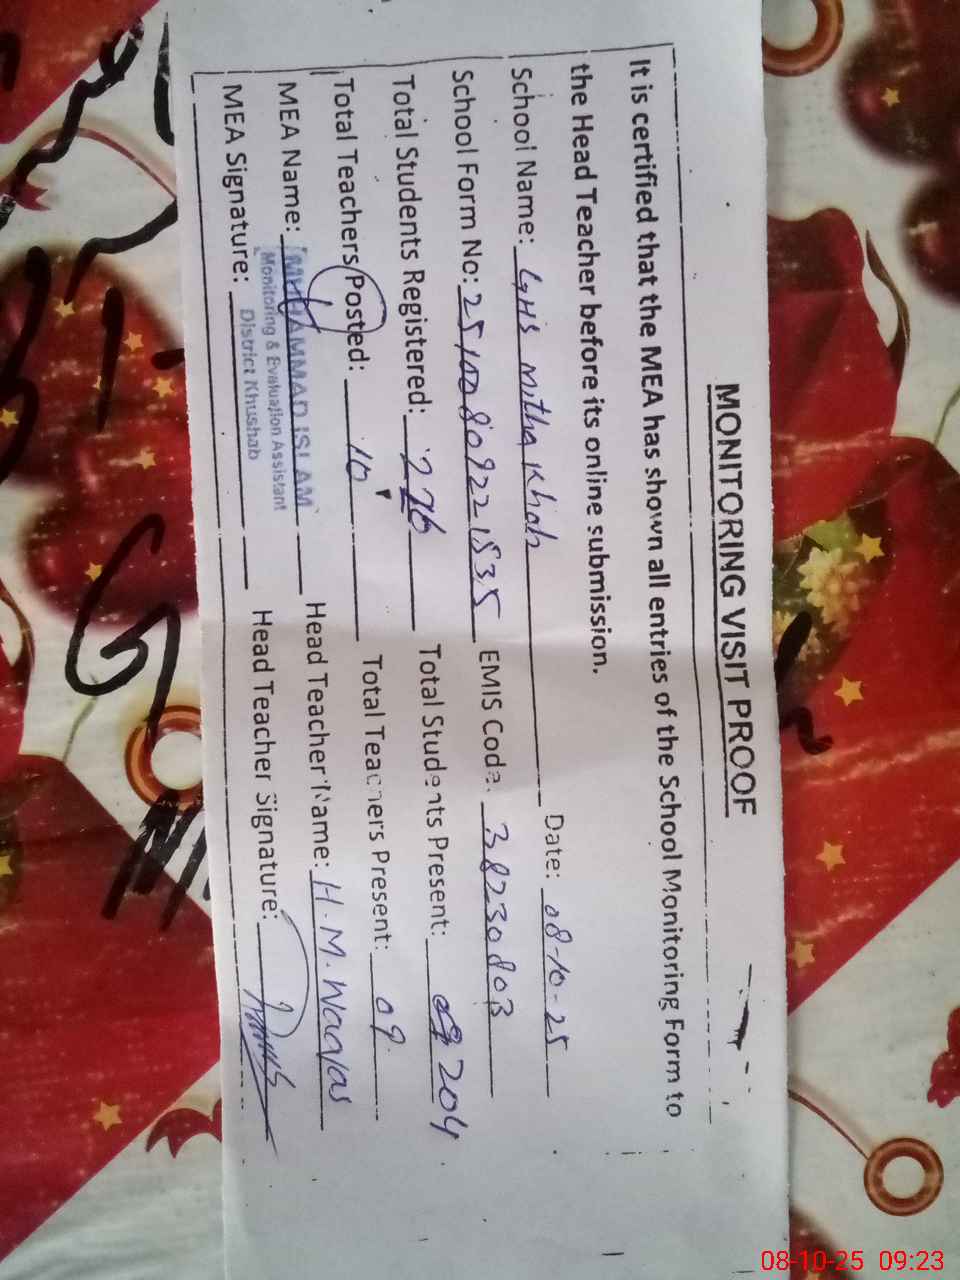 MONITORING VISIT PROOF
It is certified that the MEA has shown all entries of the School Monitoring Form to
the Head Teacher before its online submission.
School Name: GHS Mitha Khah Date: 08-10-25
School Form No: 25100809221535 EMIS Code: 38230803
Total Students Registered: 276 Total Students Present: 204
Total Teachers Posted: 10 Total Teachers Present: 09
MEA Name: MUHAMMAD ISLAM Head Teacher Name: H.M. Waqas
Monitoring & Evaluation Assistant
District Khushab
MEA Signature: Head Teacher Signature:
08-10-25 09:23